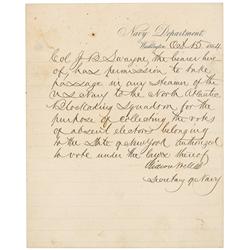 Navy Department,
Washington, Oct 15, 1864
Col J B Swayne, the bearer here
of, has permission to take
passage in any steamer of the
U S Navy to the North Atlantic
Blockading Squadron for the
purpose of collecting the votes
of absent electors belonging
to the State of New York authorized
to vote under the laws thereof
Gideon Welles
Secretary of Navy